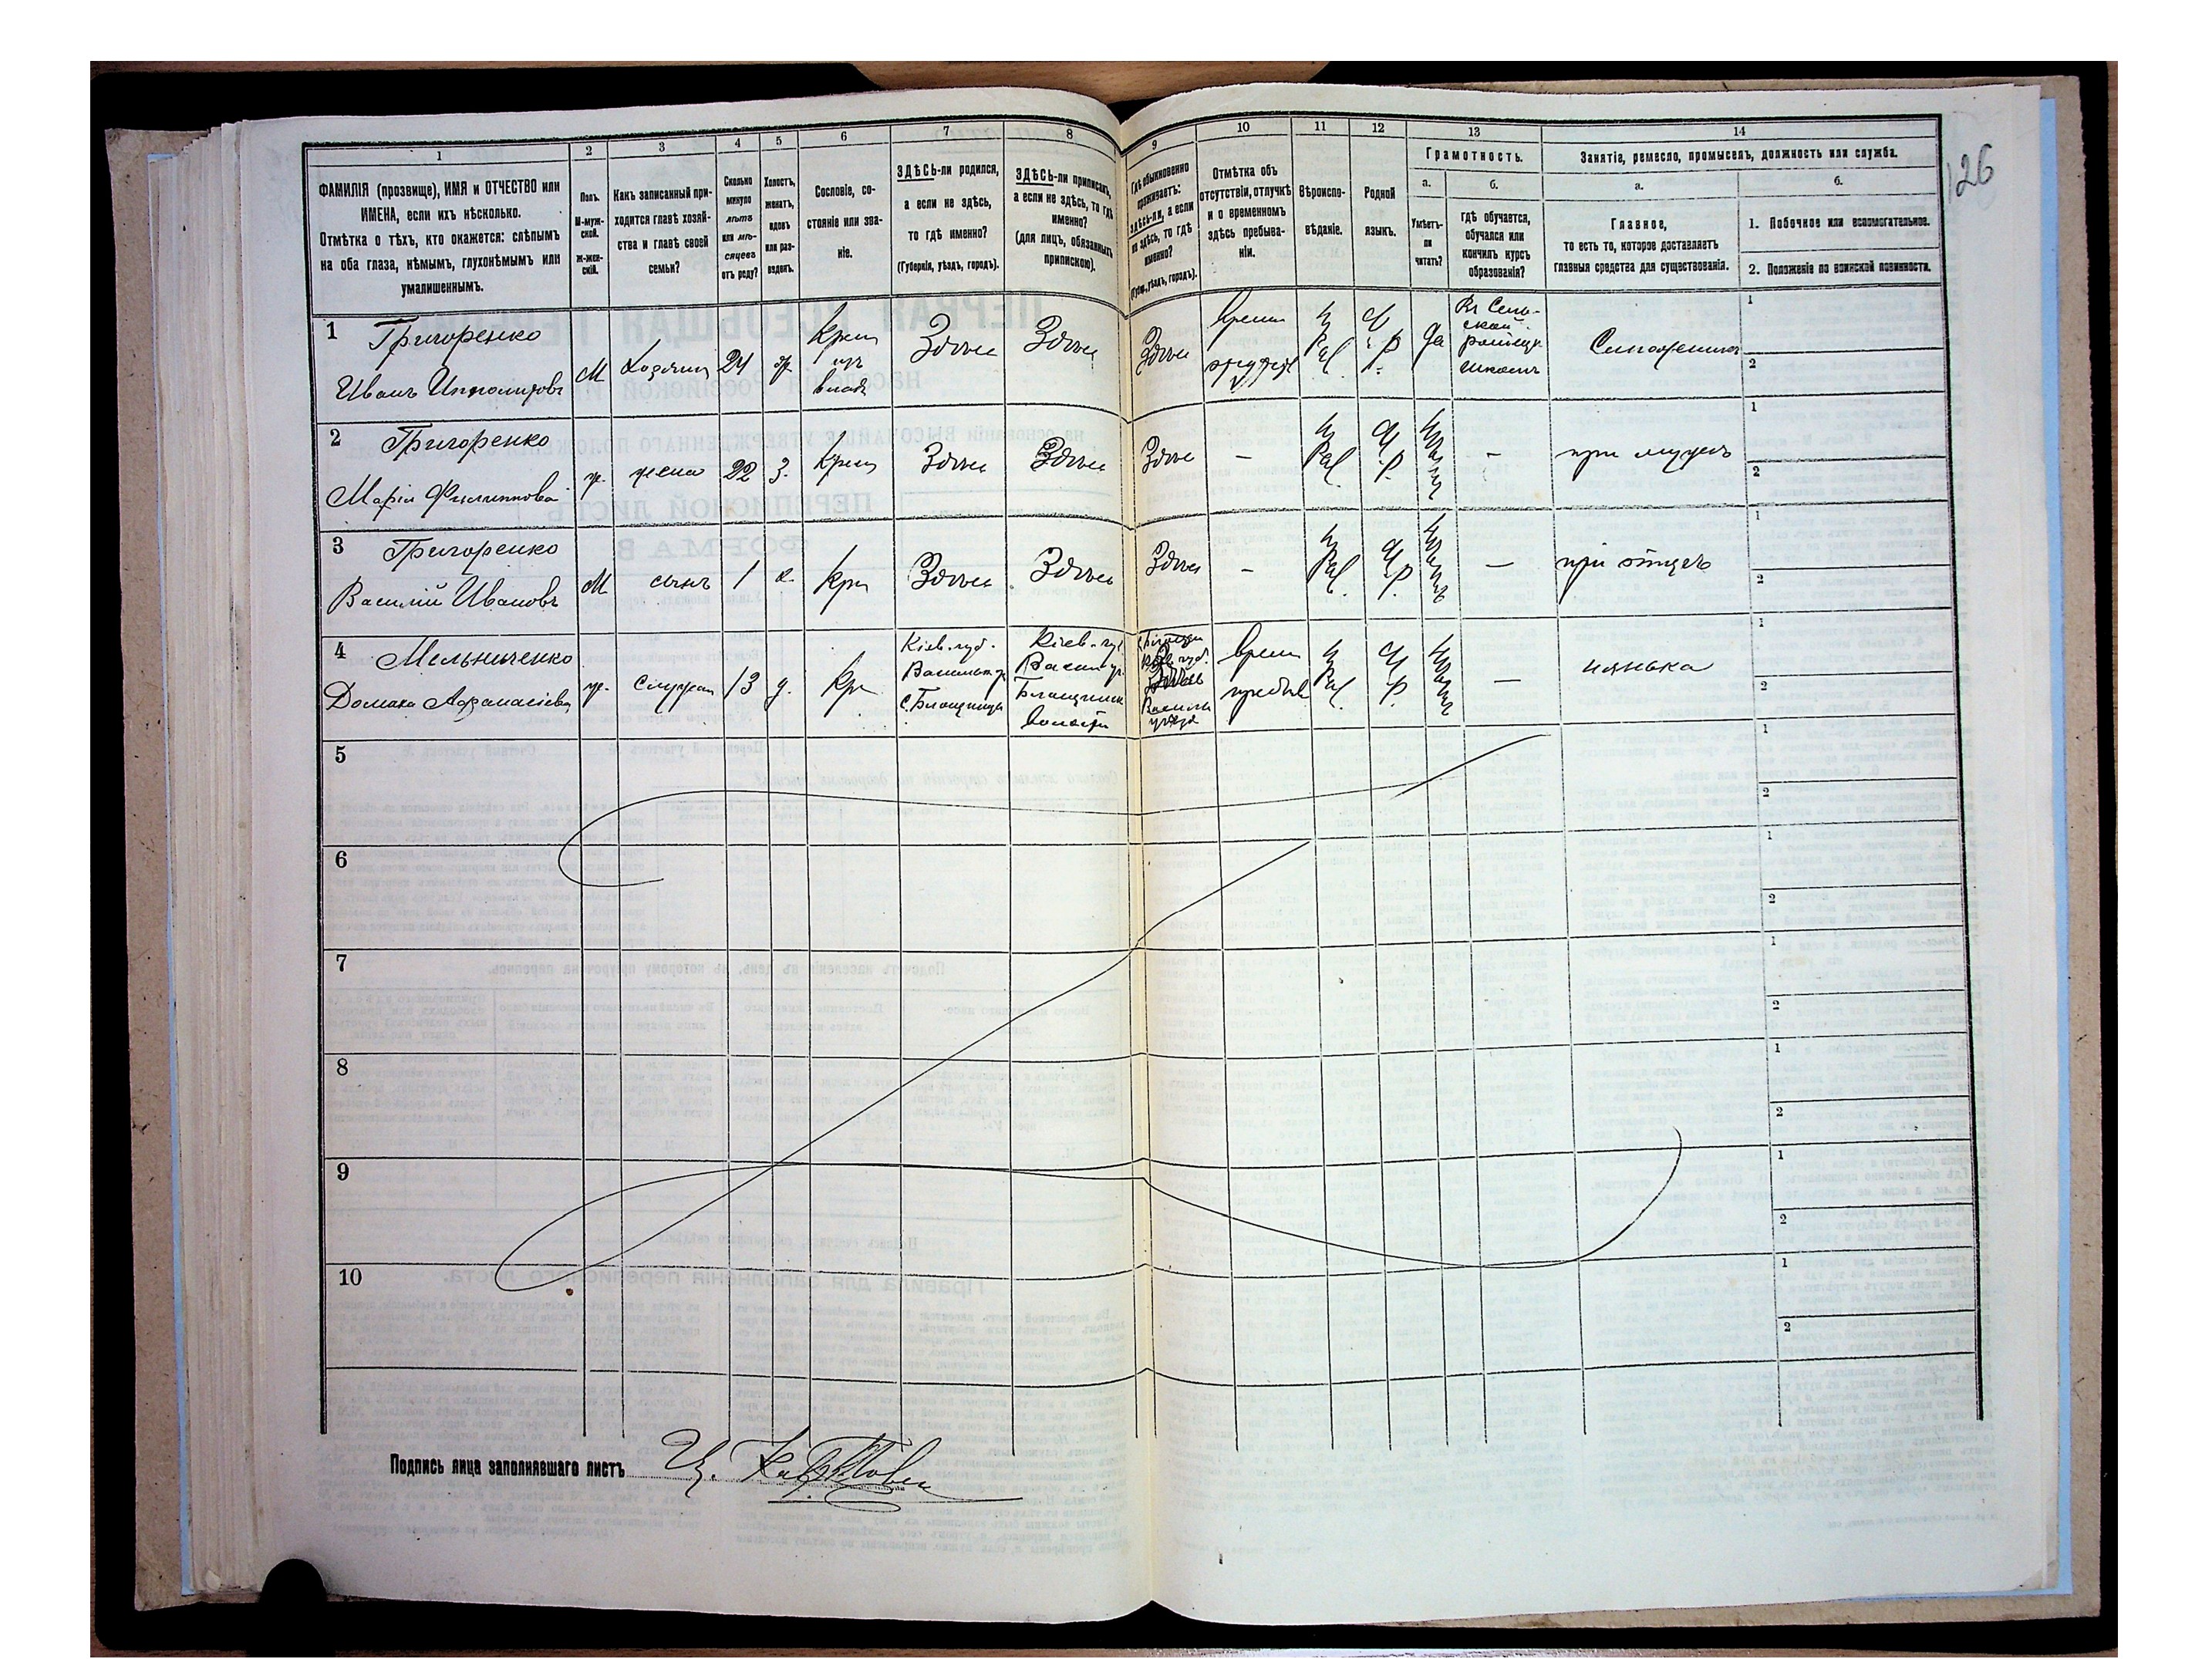 126
1 2 3 4 5 6 7 8 9 10 11 12 13 14
ФАМИЛІЯ (прозвище), ИМЯ и ОТЧЕСТВО или
ИМЕНА, если ихъ нѣсколько.
Отмѣтка о тѣхъ, кто окажется: слѣпымъ
на оба глаза, нѣмымъ, глухонѣмымъ или
умалишеннымъ.
Полъ.
М-муж-
ской.
Ж-жен-
скій.
Какъ записанный при-
ходится главѣ хозяй-
ства и главѣ своей
семьи?
Сколько
минуло
лѣтъ
или мѣ-
сяцевъ
отъ роду?
Холостъ,
женатъ,
вдовъ
или раз-
веденъ.
Сословіе, со-
стояніе или зва-
ніе.
ЗДѢСЬ-ли родился,
а если не здѣсь,
то гдѣ именно?
(Губернія, уѣздъ, городъ).
ЗДѢСЬ-ли приписанъ,
а если не здѣсь, то гдѣ
именно?
(для лицъ, обязанныхъ
припискою).
Гдѣ обыкновенно
проживаетъ:
здѣсь-ли, а если
не здѣсь, то гдѣ
именно?
(Губ., уѣздъ, городъ).
Отмѣтка объ
отсутствіи, отлучкѣ
и о временномъ
здѣсь пребыва-
ніи.
Вѣроиспо-
вѣданіе.
Родной
языкъ.
Грамотность.
а.
Умѣетъ-
ли
читать?
б.
гдѣ обучается,
обучался или
кончилъ курсъ
образованія?
Занятіе, ремесло, промыселъ, должность или служба.
а.
Главное,
то есть то, которое доставляетъ
главныя средства для существованія.
б.
1. Побочное или вспомогательное.
2. Положеніе по воинской повинности.
1 Григоренко
Иванъ Ипполитовъ
М
Хозяинъ
24
ж.
Крест
изъ
владѣ
Здѣсь
Здѣсь
Здѣсь
времен
отсутст
Да
Въ Сель-
ской
школѣ
1
2
2 Григоренко
Марія Филиппова
ж.
жена
22
З.
Крест
Здѣсь
Здѣсь
Здѣсь
—
—
при мужѣ
1
2
3 Григоренко
Василій Ивановъ
М
сынъ
1
х.
Кре
Здѣсь
Здѣсь
Здѣсь
—
—
при отцѣ
1
2
4 Мельниченко
Домаха Афанасіева
ж.
13
д.
Кр.
Кіев. губ.
Васильк. у.
с. Блощинцы
Кіев. губ.
Васильк. у.
Блощинск
волости
времен
пребыв
—
нянька
1
2
5
1
2
6
1
2
7
1
2
8
1
2
9
1
2
10
1
2
Подпись лица заполнявшаго листъ